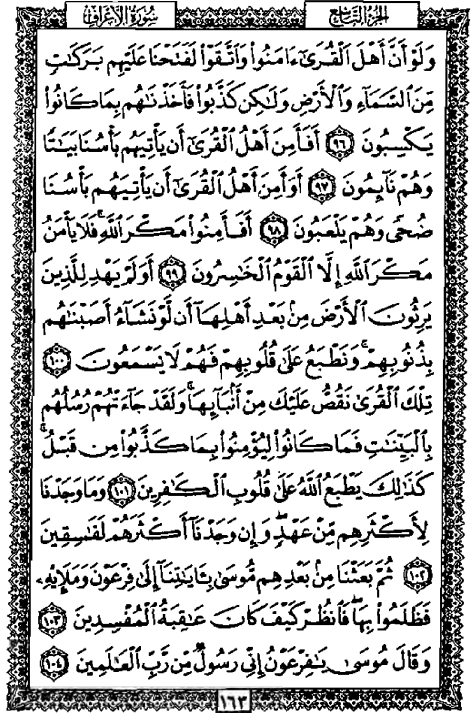 سُورَةُ الأَعْرَافِ الجزء التاسع
وَلَوْ أَنَّ أَهْلَ ٱلْقُرَىٰٓ ءَامَنُوا۟ وَٱتَّقَوْا۟ لَفَتَحْنَا عَلَيْهِم بَرَكَٰتٍ
مِّنَ ٱلسَّمَآءِ وَٱلْأَرْضِ وَلَٰكِن كَذَّبُوا۟ فَأَخَذْنَٰهُم بِمَا كَانُوا۟
يَكْسِبُونَ ٩٦ أَفَأَمِنَ أَهْلُ ٱلْقُرَىٰٓ أَن يَأْتِيَهُم بَأْسُنَا بَيَٰتًا
وَهُمْ نَآئِمُونَ ٩٧ أَوَأَمِنَ أَهْلُ ٱلْقُرَىٰٓ أَن يَأْتِيَهُم بَأْسُنَا
ضُحًى وَهُمْ يَلْعَبُونَ ٩٨ أَفَأَمِنُوا۟ مَكْرَ ٱللَّهِ ۚ فَلَا يَأْمَنُ
مَكْرَ ٱللَّهِ إِلَّا ٱلْقَوْمُ ٱلْخَٰسِرُونَ ٩٩ أَوَلَمْ يَهْدِ لِلَّذِينَ
يَرِثُونَ ٱلْأَرْضَ مِنۢ بَعْدِ أَهْلِهَآ أَن لَّوْ نَشَآءُ أَصَبْنَٰهُم
بِذُنُوبِهِمْ ۚ وَنَطْبَعُ عَلَىٰ قُلُوبِهِمْ فَهُمْ لَا يَسْمَعُونَ ١٠٠
تِلْكَ ٱلْقُرَىٰ نَقُصُّ عَلَيْكَ مِنْ أَنۢبَآئِهَا ۚ وَلَقَدْ جَآءَتْهُمْ رُسُلُهُم
بِٱلْبَيِّنَٰتِ فَمَا كَانُوا۟ لِيُؤْمِنُوا۟ بِمَا كَذَّبُوا۟ مِن قَبْلُ ۚ
كَذَٰلِكَ يَطْبَعُ ٱللَّهُ عَلَىٰ قُلُوبِ ٱلْكَٰفِرِينَ ١٠١ وَمَا وَجَدْنَا
لِأَكْثَرِهِم مِّنْ عَهْدٍ ۖ وَإِن وَجَدْنَآ أَكْثَرَهُمْ لَفَٰسِقِينَ
١٠٢ ثُمَّ بَعَثْنَا مِنۢ بَعْدِهِم مُّوسَىٰ بِـَٔايَٰتِنَآ إِلَىٰ فِرْعَوْنَ وَمَلَإِي۟هِۦ
فَظَلَمُوا۟ بِهَا ۖ فَٱنظُرْ كَيْفَ كَانَ عَٰقِبَةُ ٱلْمُفْسِدِينَ ١٠٣
وَقَالَ مُوسَىٰ يَٰفِرْعَوْنُ إِنِّى رَسُولٌ مِّن رَّبِّ ٱلْعَٰلَمِينَ ١٠٤
١٦٣